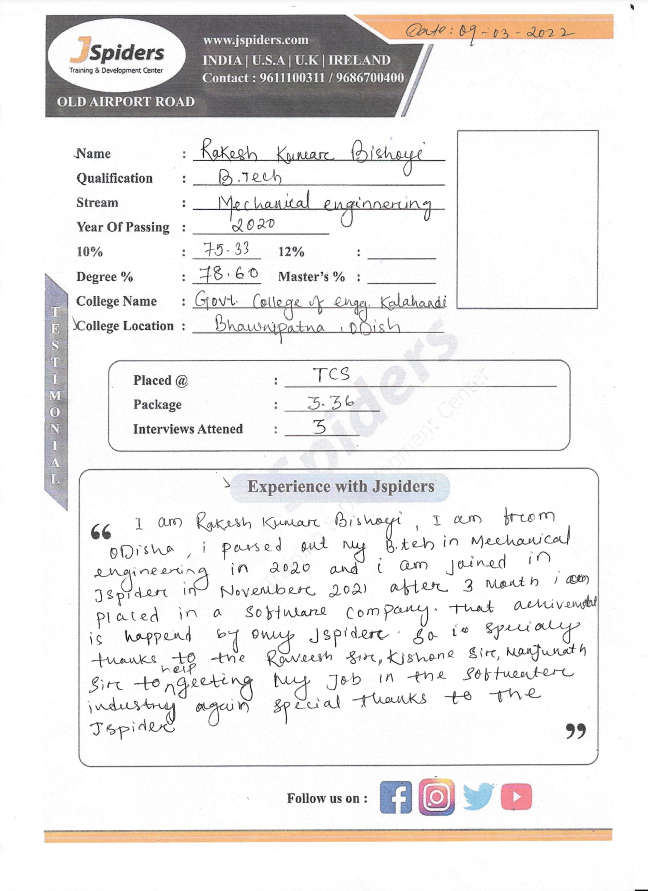 Date: 09-03-2022
JSpiders
Training & Development Center
OLD AIRPORT ROAD
www.jspiders.com
INDIA | U.S.A | U.K | IRELAND
Contact : 9611100311 / 9686700400
Name : Rakesh Kumarc Bishoyi
Qualification : B.Tech
Stream : Mechanical enginnering
Year Of Passing : 2020
10% : 75.33 12% :
Degree % : 78.60 Master's % :
College Name : Govt. College of engg. Kalahandi
College Location : Bhawnipatna, ODish
TESTIMONIAL
Placed @ : TCS
Package : 3.36
Interviews Attened : 3
Experience with Jspiders
“ I am Rakesh Kumarc Bishoyi, I am from
ODisha, i passed out my B.teh in Mechanical
engineering in 2020 and i am joined in
JSpiderc in Novemberc 2021 after 3 Month i am
placed in a software company. That achivemetal
is happend by only Jspiderc. So i specialy
thanks to the Raveesh Sirc, Kishore Sirc, Manjunath
Sirc to help geeting My Job in the Softwaere
industry again special thanks to the
Jspider ”
Follow us on :